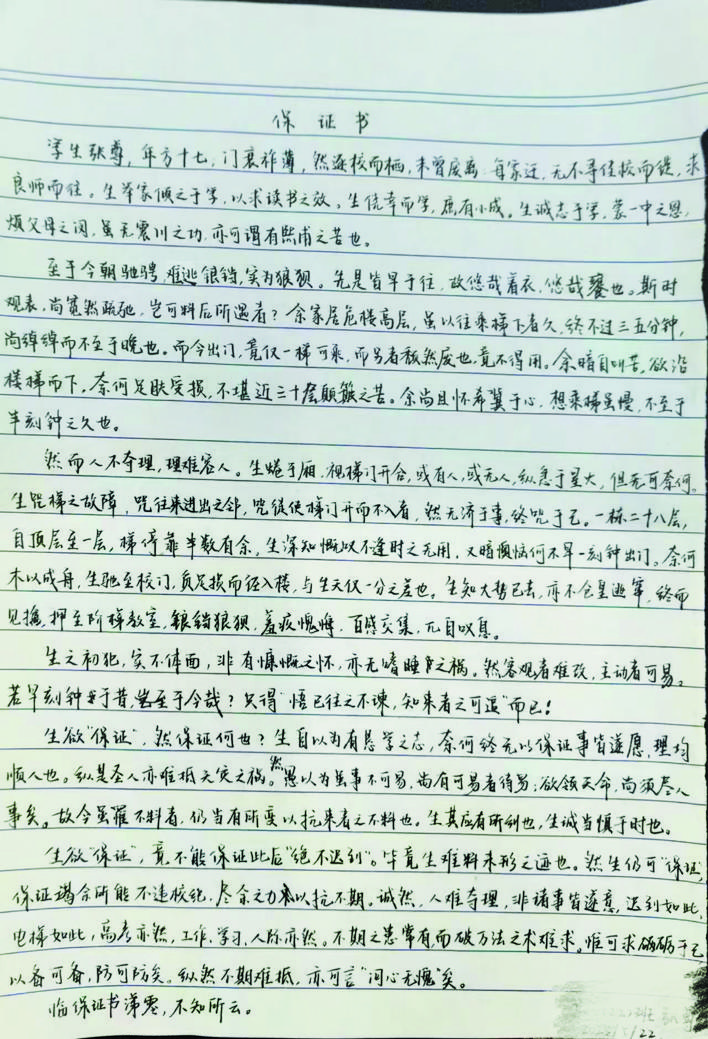 保 证 书
学生张尊，年方十七，门衰祚薄，然逐校而栖，未曾废离。每家迁，无不寻佳校而徙，求
良师而往。生举家倾之于学，以求读书之效。生侥幸而学，庶有小成。生诚志于学，蒙一中之恩，
烦父母之问，虽无震川之功，亦可谓有熙甫之苦也。
至于今朝驰骋，难逃锒铛，实为狼狈。先是皆早于往，故悠哉着衣，悠哉饔也。斯时
观表，尚宽然疏弛，岂可料后所遇者？余家居危楼高层，虽以往乘梯下者久，终不过三五分钟，
尚绰绰而不至于晚也。而今出门，竟仅一梯可乘，而另者颓然废也，竟不得用。余暗自叫苦，欲沿
楼梯而下，奈何足肤受损，不堪近三十层颠簸之苦。余尚且怀希冀于心，想乘梯虽慢，不至于
半刻钟之久也。
然而人不夺理，理难容人。生蜷于厢，视梯门开合，或有人，或无人，纵急于星火，但无可奈何。
生咒梯之故障，咒往来进出之邻，咒徒使梯门开而不入者，然无济于事，终咒于己。一栋二十八层，
自顶层至一层，梯停靠半数有余，生深知慨叹不逢时之无用，又暗懊恼何不早一刻钟出门。奈何
木以成舟，生驰至校门，负足损而狂入楼，与生天仅一分之差也。生知大势已去，亦不仓皇逃窜，终而
见擒，押至阶梯教室，锒铛狼狈，羞疚愧悔，百感交集，兀自叹息。
生之初犯，实不体面，非有慷慨之怀，亦无嗜睡之祸。然客观者难改，主动者可易。
若早刻钟于昔，岂至于今哉？只得“悟已往之不谏，知来者之可追”而已！
生欲“保证”，然保证何也？生自以为有恳学之志，奈何终无以保证事皆遂愿，理均
顺人也。纵是圣人亦难抵天灾之祸。然愚以为虽事不可易，尚有可易者待易；欲领天命，尚须尽人
事矣。故今虽罹不料者，仍当有所变以抗来者之不料也。生其应有所创也，生诚当慎于时也。
生欲“保证”，竟不能保证此后“绝不迟到”。毕竟生难料未形之迹也。然生仍可“保证”，
保证竭余所能不违校纪，尽余之力以抗不期。诚然，人难夺理，非诸事皆遂意，迟到如此，
电梯如此，高考亦然，工作、学习、人际亦然。不期之患常有而破万法之术难求。惟可求砥砺于己
以备可备，防可防矣。纵然不期难抵，亦可言“问心无愧”矣。
临保证书涕零，不知所云。
22